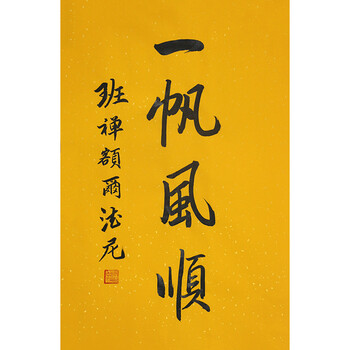 一帆風順
班禅額爾德尼